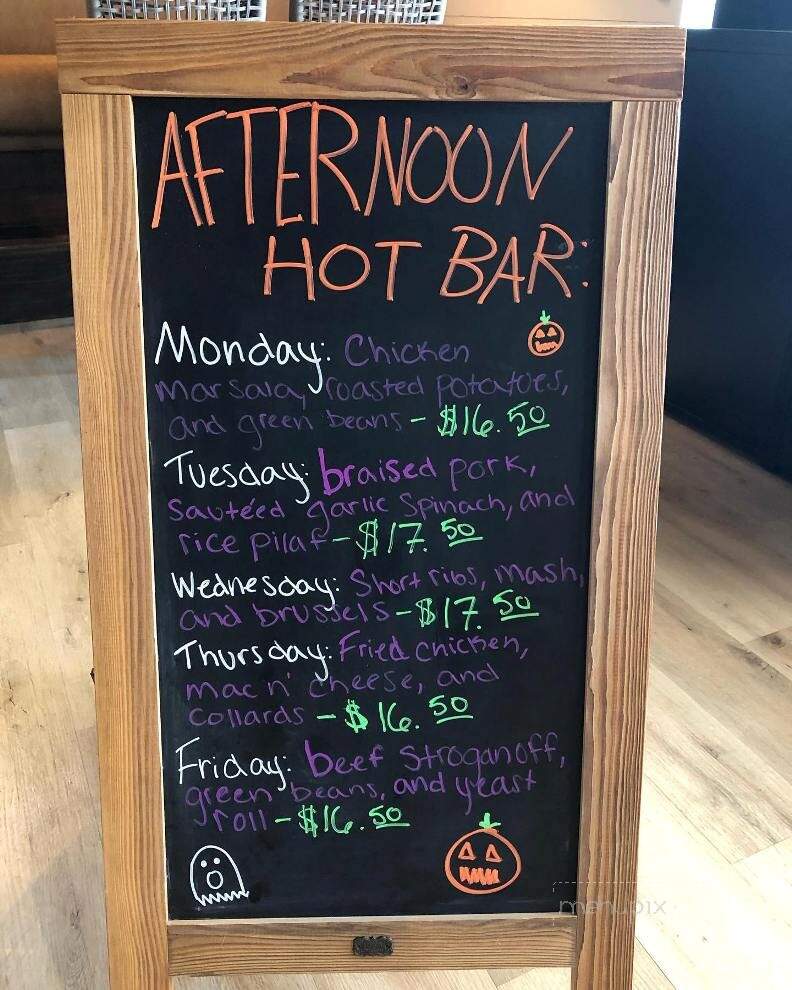 AFTERNOON
HOT BAR:
Monday: Chicken
marsala, roasted potatoes,
and green beans - $16.50
Tuesday: braised pork,
Sautéed garlic Spinach, and
rice pilaf - $17.50
Wednesday: Short ribs, mash,
and brussels - $17.50
Thursday: Fried chicken,
mac n' cheese, and
collards - $16.50
Friday: beef Stroganoff,
green beans, and yeast
roll - $16.50
menupix